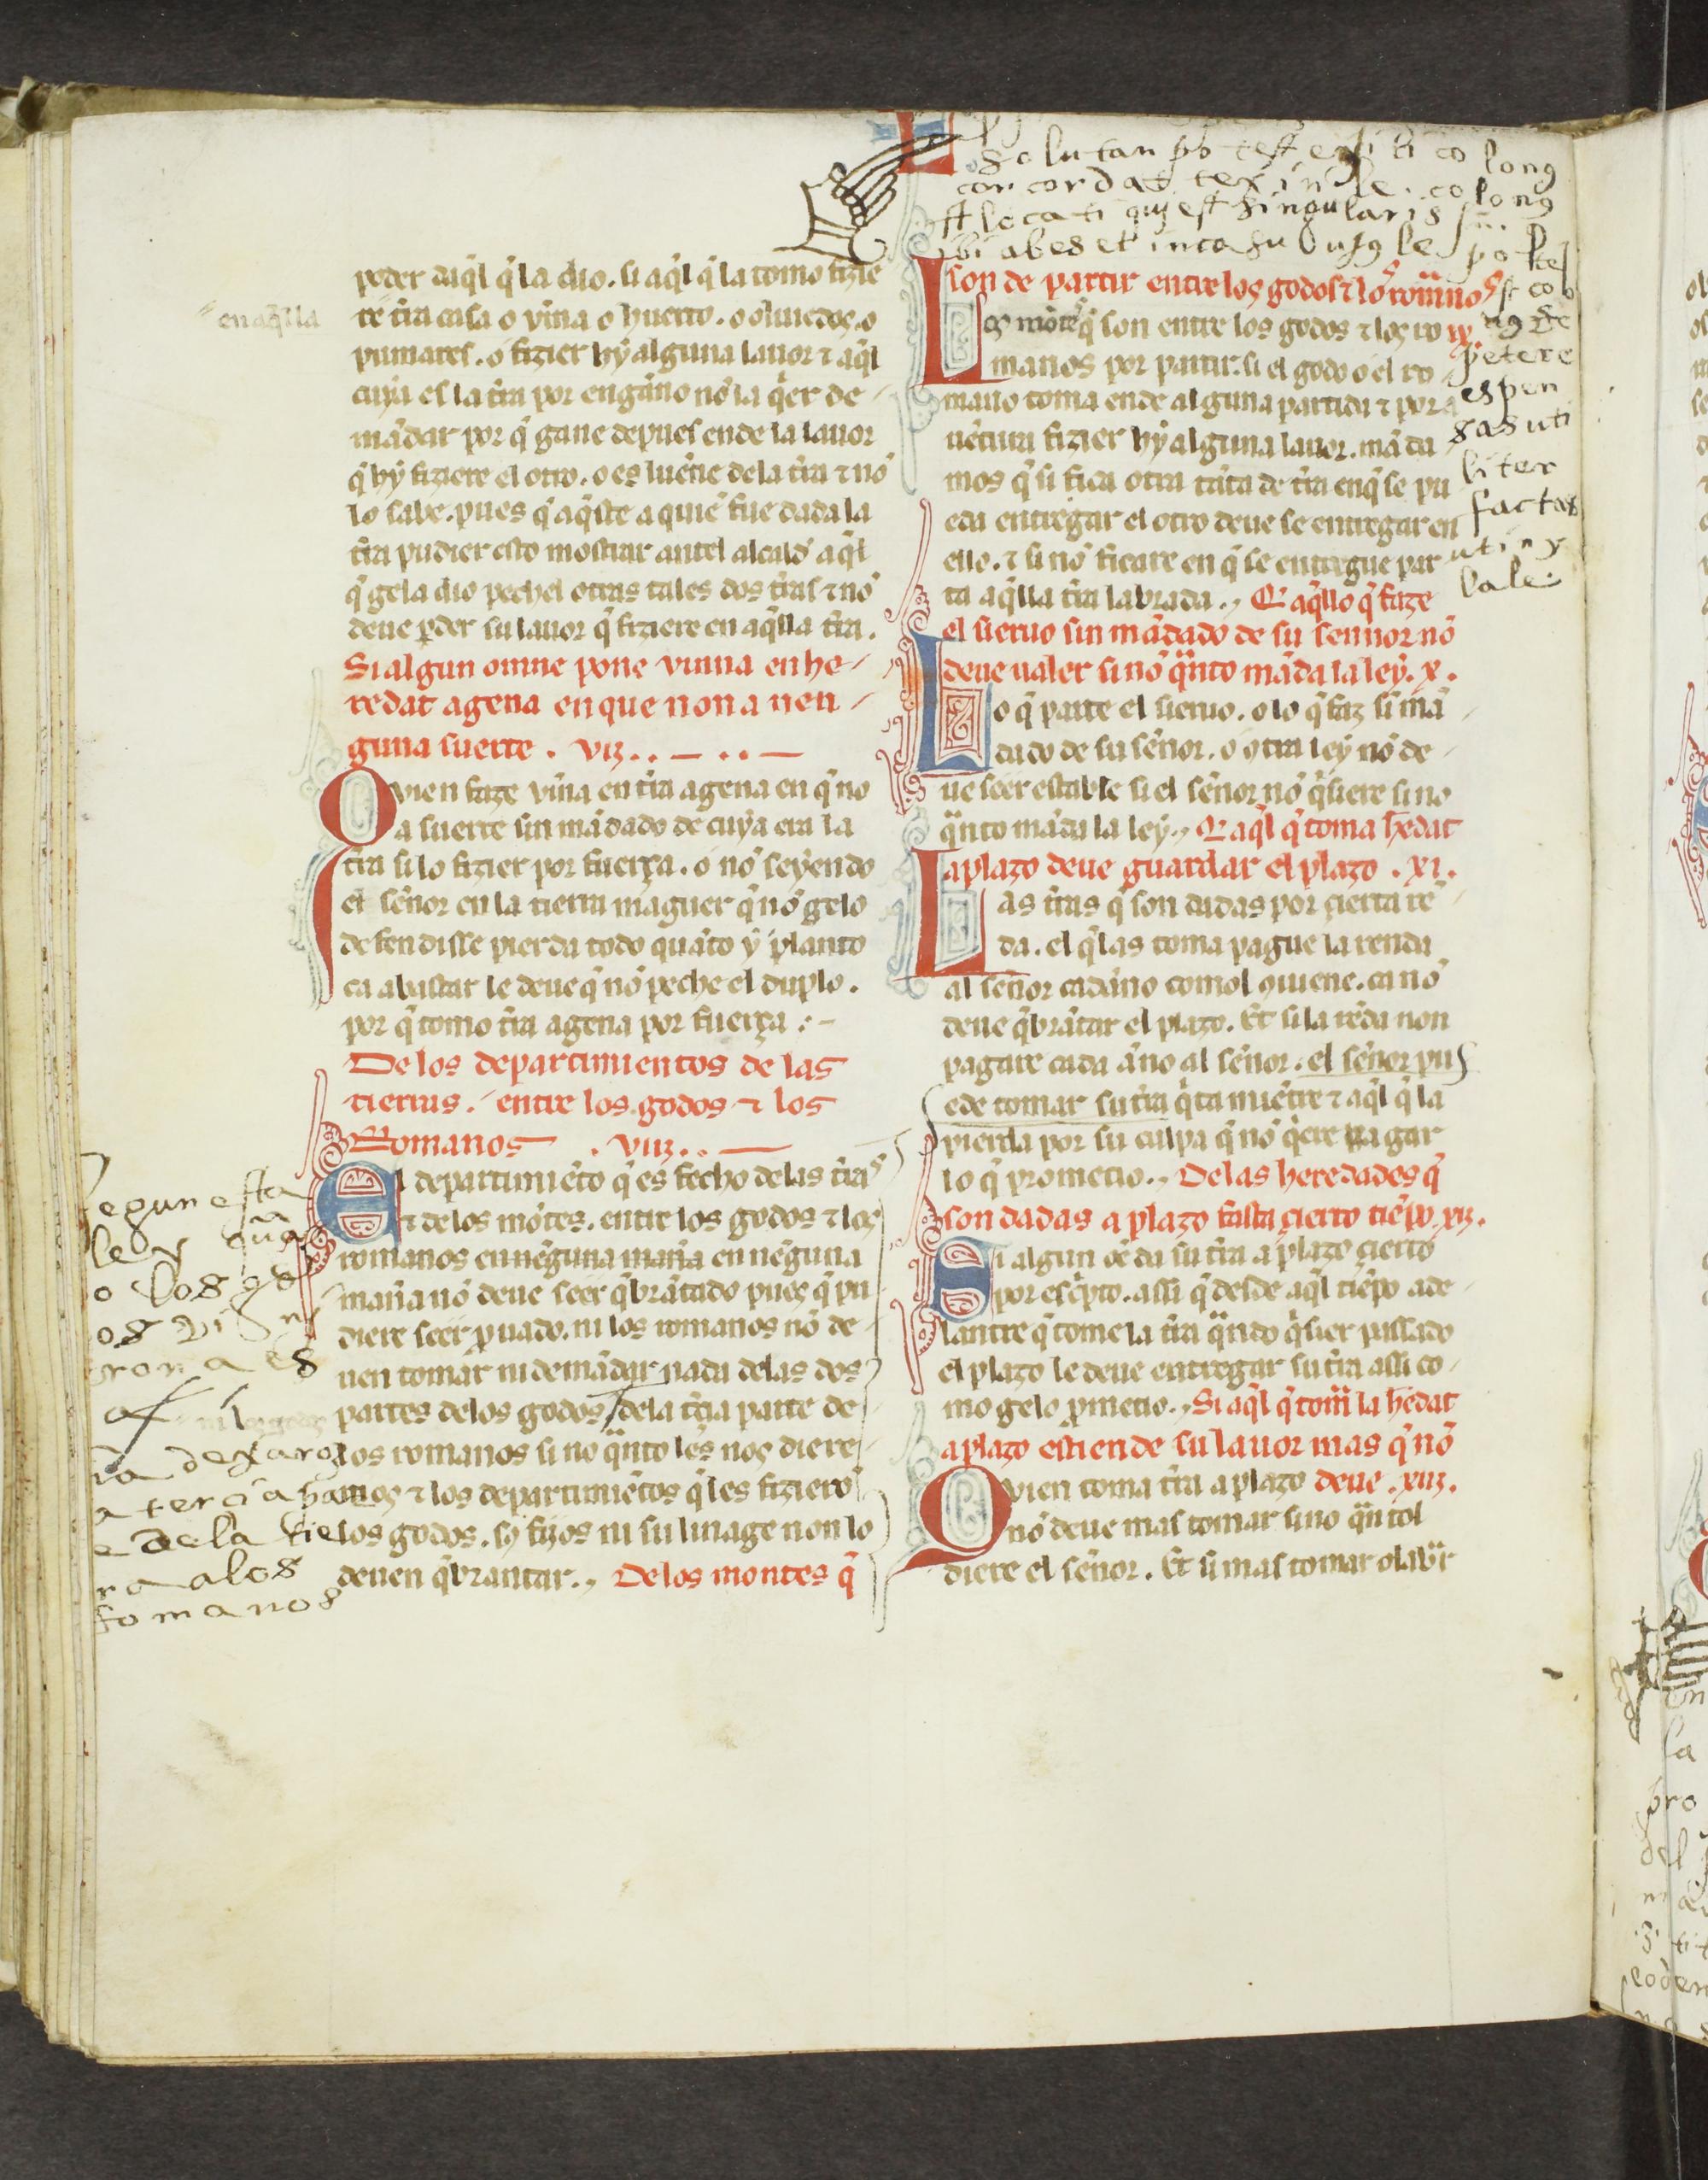 peder daq̃l q̃ la dio. si aq̃l q̃ la tomo fizie
re t̃ra casa o viña o huerto. o oliuedos. o
pumares. o fizier hy alguna lauor ⁊ aq̃l
cuya es la t̃ra por engãno nõ la q̃er de
mãdar por q̃ gane depues ende la lauor
q̃ hy fiziere el otro. o es lueñe dela t̃ra ⁊ nõ
lo sabe. pues q̃ aq̃ste a quiẽ fue dada la
t̃ra pudier esto mostrar antel alcald̃ aq̃l
q̃ gela dio pechel otras tales dos t̃ras ⁊ nõ
deue p̃der su lauor q̃ fiziere en aq̃lla t̃ra.
Si algun omne pone vinna en he-
redat agena en que non a nen-
guna suerte. vij.
Quien faze viña en t̃ra agena en q̃ no
a suerte sin mãdado de cuya era la
t̃ra si lo fizier por fuerça. o nõ seyendo
el señor en la tierra maguer q̃ nõ gelo
defendisse pierda todo quãto y planto
ca abastar le deue q̃ nõ peche el duplo.
por q̃ tomo t̃ra agena por fuerça.
De los departimientos de las
tierras. entre los godos ⁊ los
Romanos. viij.
El departimiẽto q̃ es fecho delas t̃ras
⁊ delos mõtes. entre los godos ⁊ los
romanos en nẽguna mañra en nẽguna
mañra nõ deue seer q̃brãtado pues q̃ pu
diere seer p̃uado. ni los romanos nõ de
uen tomar ni demãdar nada delas dos
partes delos godos dela t̃cia parte de
los romanos si no q̃nto les nos diere
mos ⁊ los departimiẽtos q̃ les fizierõ
los godos. sꝯ fijos ni su linage non lo
deuen q̃brantar. Delos montes q̃
en aq̃lla
segun esta
ley
o los go
os
a dexaron
a tercia
e dela tie
ra alos
romanos
solutan potest
concordat tex in le. colonꝯ
ff locati qui est singularis
ibi abes et in casu
son de partir entre los godos ⁊ los romanos
Los mõtes q̃ son entre los godos ⁊ los ro ix.
manos por partir. si el godo o el ro
mano toma ende alguna partida ⁊ por a
uẽtura fizier hy alguna lauor. mãda
mos q̃ si fica otra tãta de t̃ra en q̃ se pu
eda entregar el otro deue se entregar en
ello. ⁊ si nõ ficare en q̃ se entregue par
ta aq̃lla t̃ra labrada. Q̃ aq̃llo q̃ faze
el sieruo sin mãdado de su sennor nõ
deue ualer si nõ q̃nto mãda la ley. x.
Lo q̃ parte el sieruo. o lo q̃ faz sĩ mã
dado de su señor. o otra ley nõ de
ue seer estable si el señor nõ q̃siere sino
q̃nto mãda la ley. Q̃ aq̃l q̃ toma h̃edat
a plazo deue guardar el plazo. xi.
Las t̃ras q̃ son dadas por çierta rẽ
da. el q̃ las toma pague la renda
al señor cadãno comol ꝯuiene. ca nõ
deue q̃brãtar el plazo. Et si la rẽda non
pagare cada año al señor. el señor pu
ede tomar su t̃ra q̃ta miẽtre ⁊ aq̃l q̃ la
pierda por su culpa q̃ nõ q̃ere pagar
lo q̃ prometio. Delas heredades q̃
son dadas a plazo fasta çierto tiẽpo. xij.
Si algun õe da su t̃ra a plazo çierto
por esc̃pto. assi q̃ desde aq̃l tiẽpo ade
lantre q̃ tome la t̃ra q̃ndo q̃sier passado
el plazo le deue entregar su t̃ra assi co
mo gelo p̃metio. Si aq̃l q̃ toma la h̃edat
a plazo estiende su lauor mas q̃ nõ
Quien toma t̃ra a plazo deue. xiij.
nõ deue mas tomar sino q̃ntol
diere el señor. Et si mas tomar o labr̃
petere
espen
sas uti
liter
factas